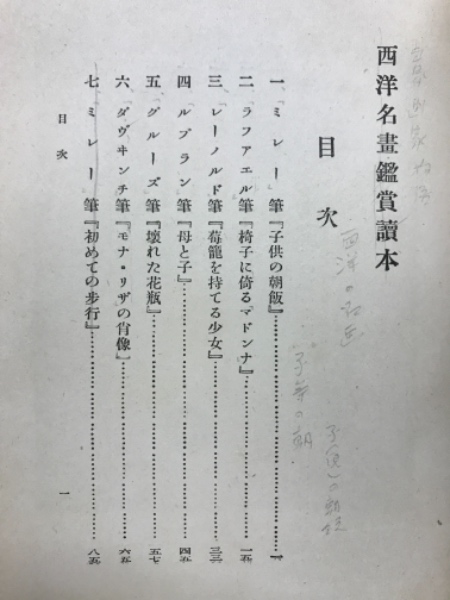 西洋名畫鑑賞讀本
目次
一、『ミレー』筆『子供の朝飯』……一
二、『ラファエル』筆『椅子に倚るマドンナ』……一五
三、『レーノルド』筆『苺籠を持てる少女』……三三
四、『ルブラン』筆『母と子』……四五
五、『グルーズ』筆『壊れた花瓶』……五七
六、『ダヴヰンチ』筆『モナ・リザの肖像』……六五
七、『ミレー』筆『初めての歩行』……八五
目次
一
西洋の名画